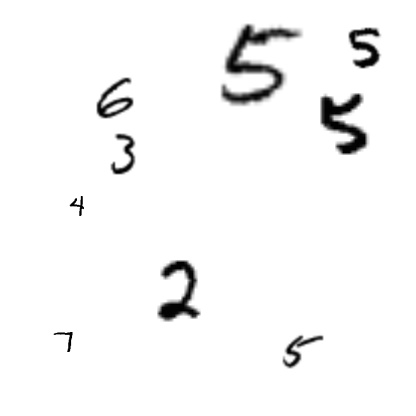 5 5
6 5
3
4
2
7 5